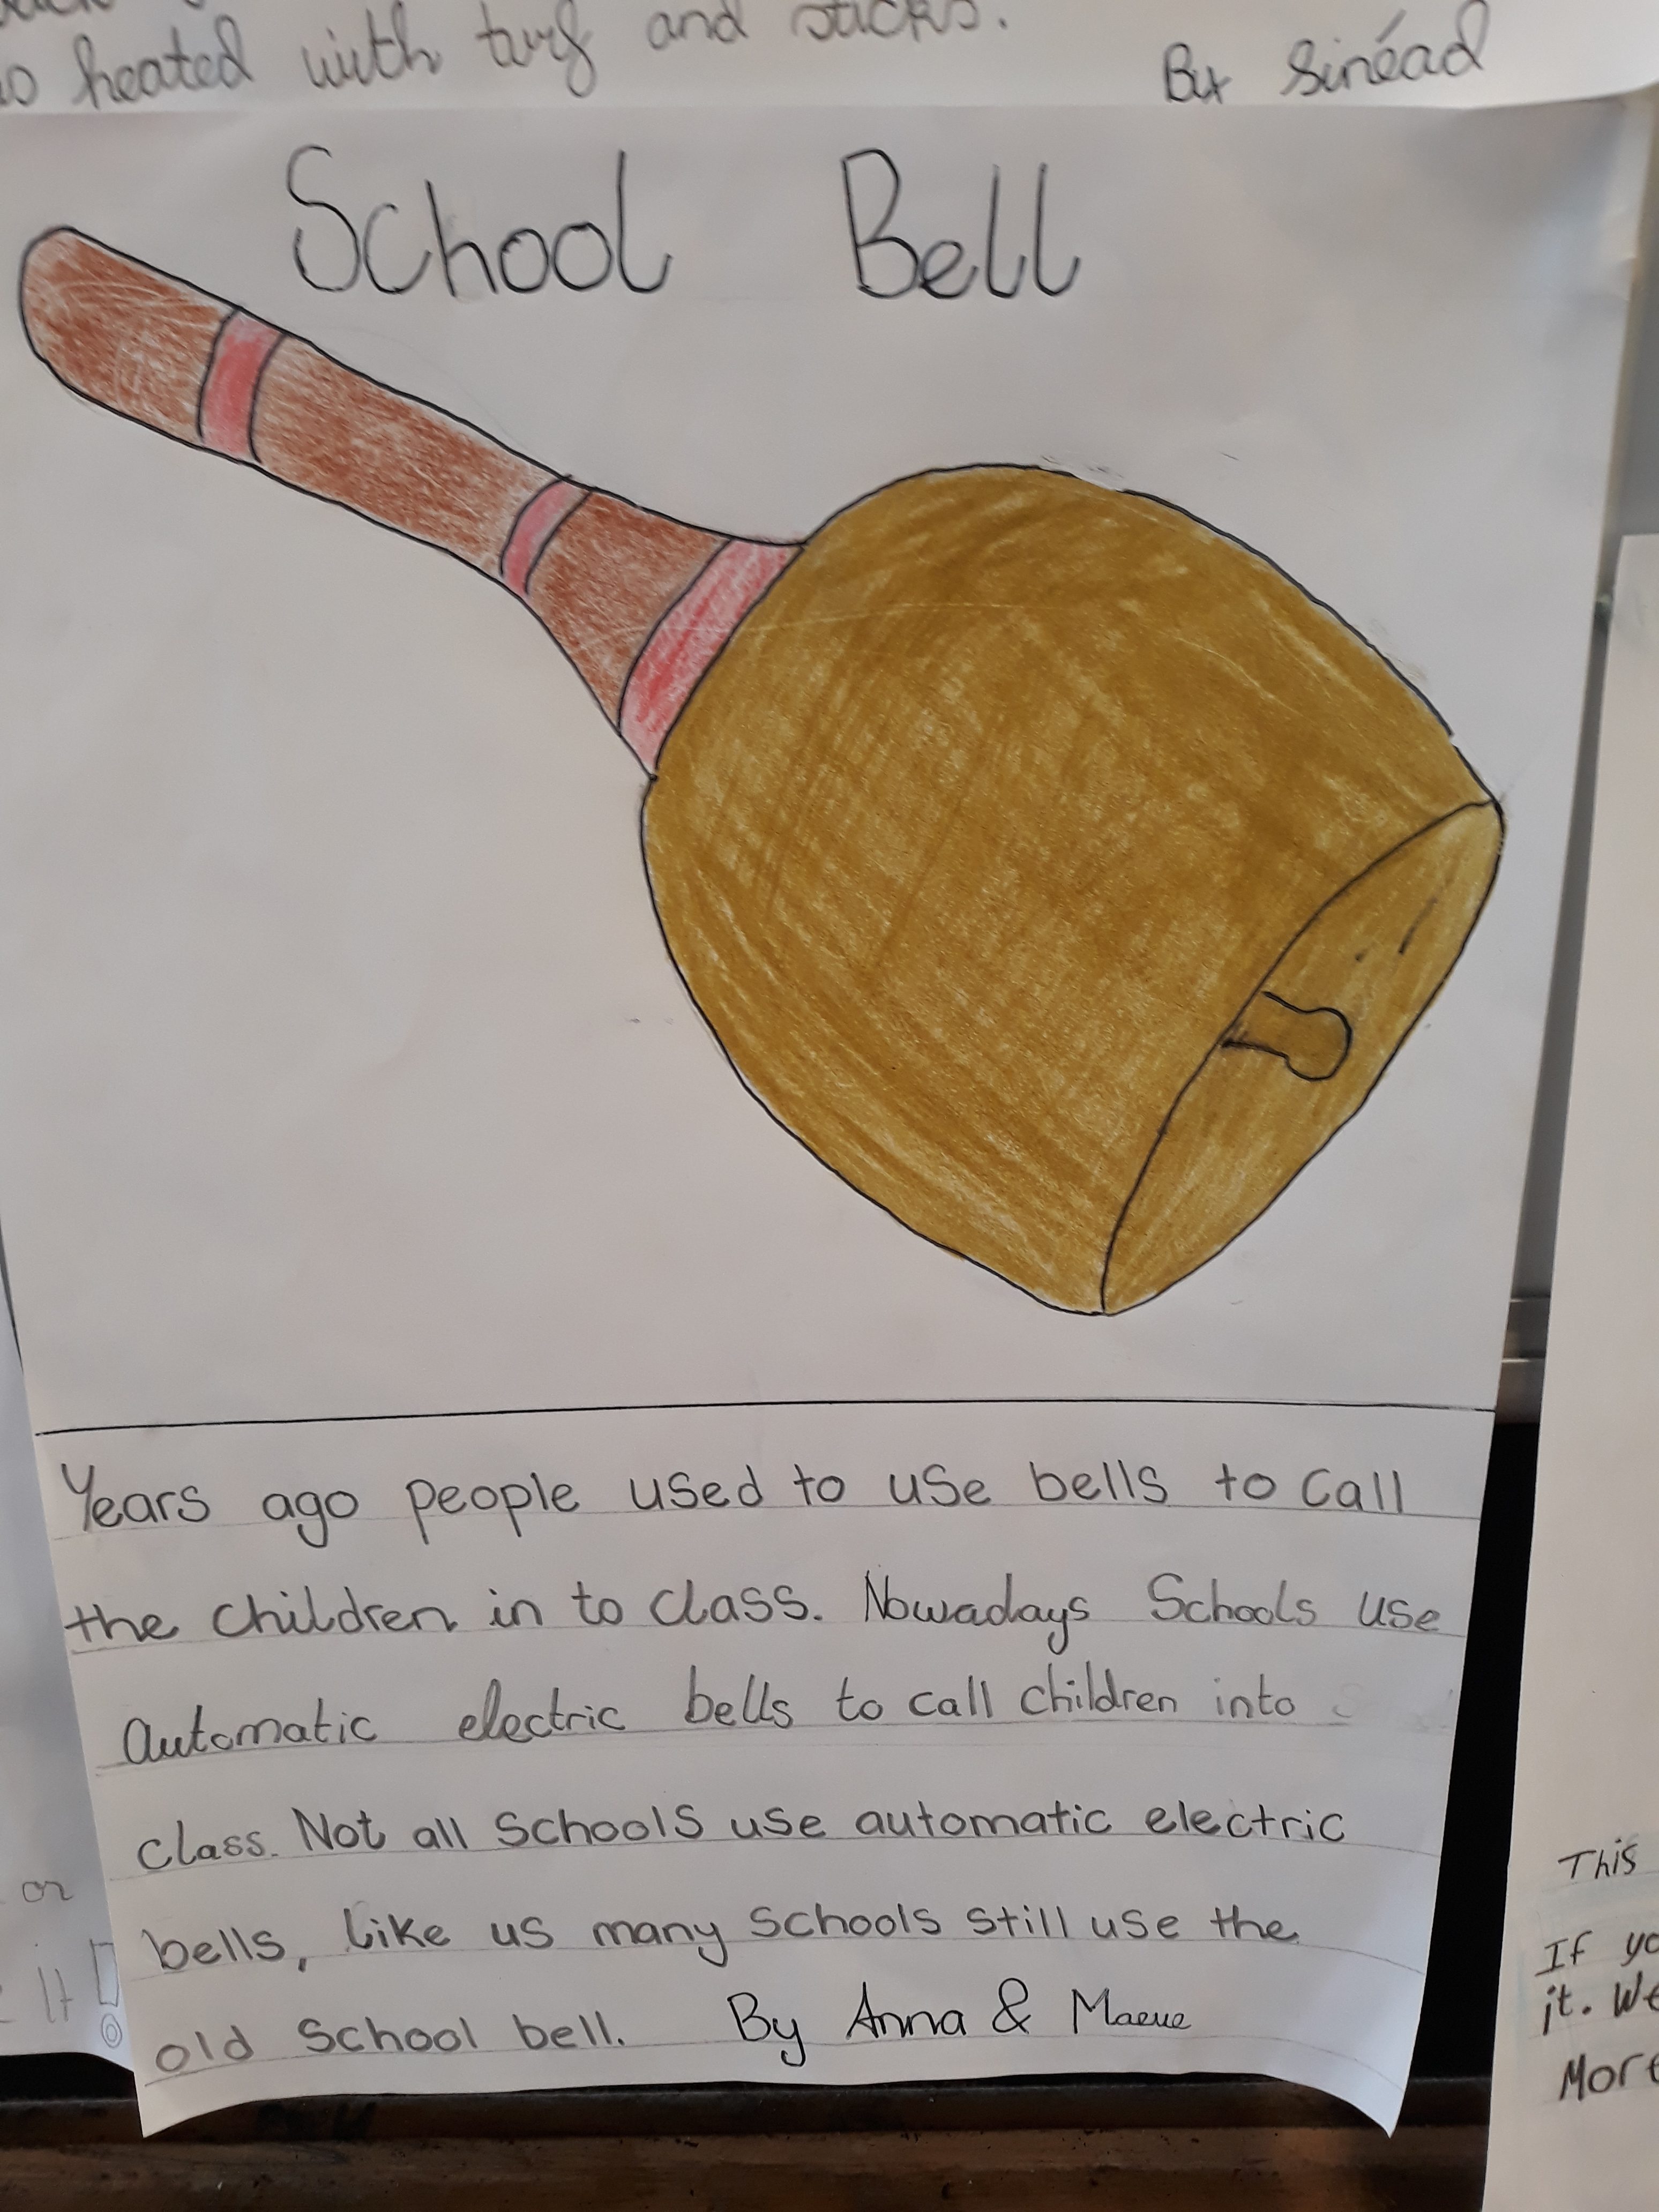 heated with turf and sticks.
By Sinéad
School Bell
Years ago people used to use bells to call
the children in to class. Nowadays Schools use
automatic electric bells to call children into
class. Not all schools use automatic electric
bells, like us many schools still use the
old school bell. By Anna & Maeve
or
it!
This
If yo
it. We
More